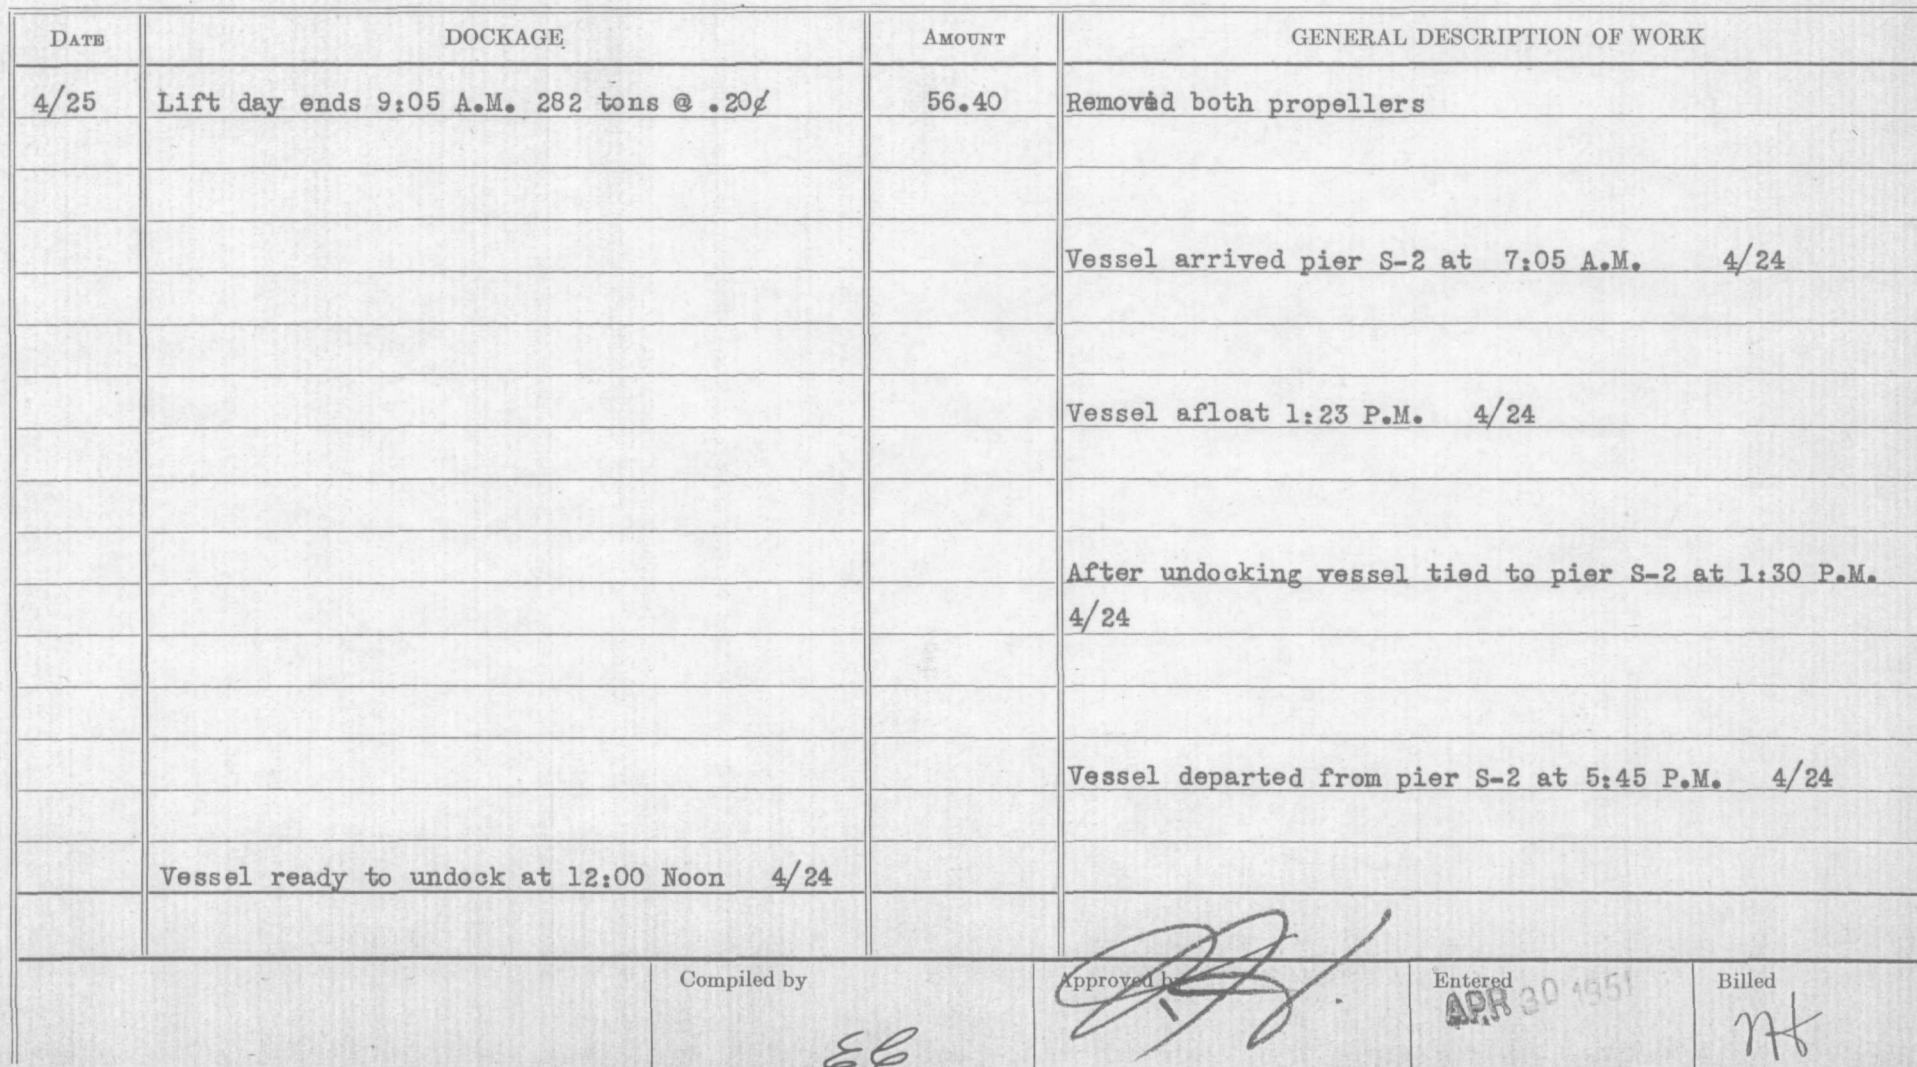 DATE DOCKAGE AMOUNT GENERAL DESCRIPTION OF WORK
4/25 Lift day ends 9:05 A.M. 282 tons @ .20¢ 56.40 Removed both propellers
Vessel arrived pier S-2 at 7:05 A.M. 4/24
Vessel afloat 1:23 P.M. 4/24
After undocking vessel tied to pier S-2 at 1:30 P.M.
4/24
Vessel departed from pier S-2 at 5:45 P.M. 4/24
Vessel ready to undock at 12:00 Noon 4/24
Compiled by Approved by Entered Billed
APR 30 1951
EC